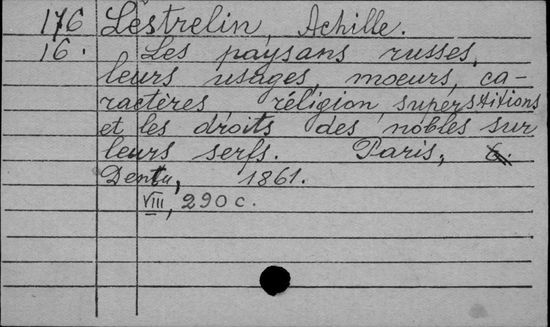 176 Lestrelin, Achille.
16. Les paysans russes,
leurs usages, moeurs, ca-
ractères réligion, superstitions
et les droits des nobles sur
leurs serfs. Paris,
Dentu, 1861.
VIII, 290 c.